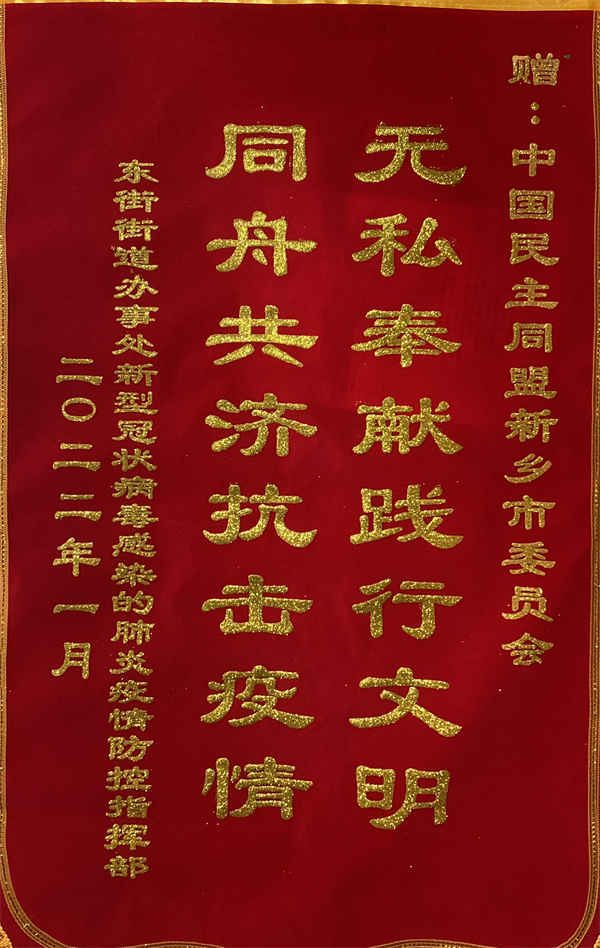 赠：中国民主同盟新乡市委员会
无私奉献践行文明
同舟共济抗击疫情
东街街道办事处新型冠状病毒感染的肺炎疫情防控指挥部
二〇二二年一月